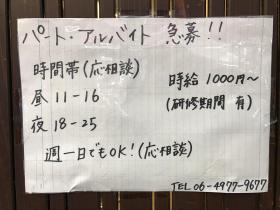 パート・アルバイト 急募!!
時間帯(応相談)
昼 11-16
夜 18-25
時給 1000円~
(研修期間 有)
週一日でもOK!(応相談)
TEL 06-4977-9677